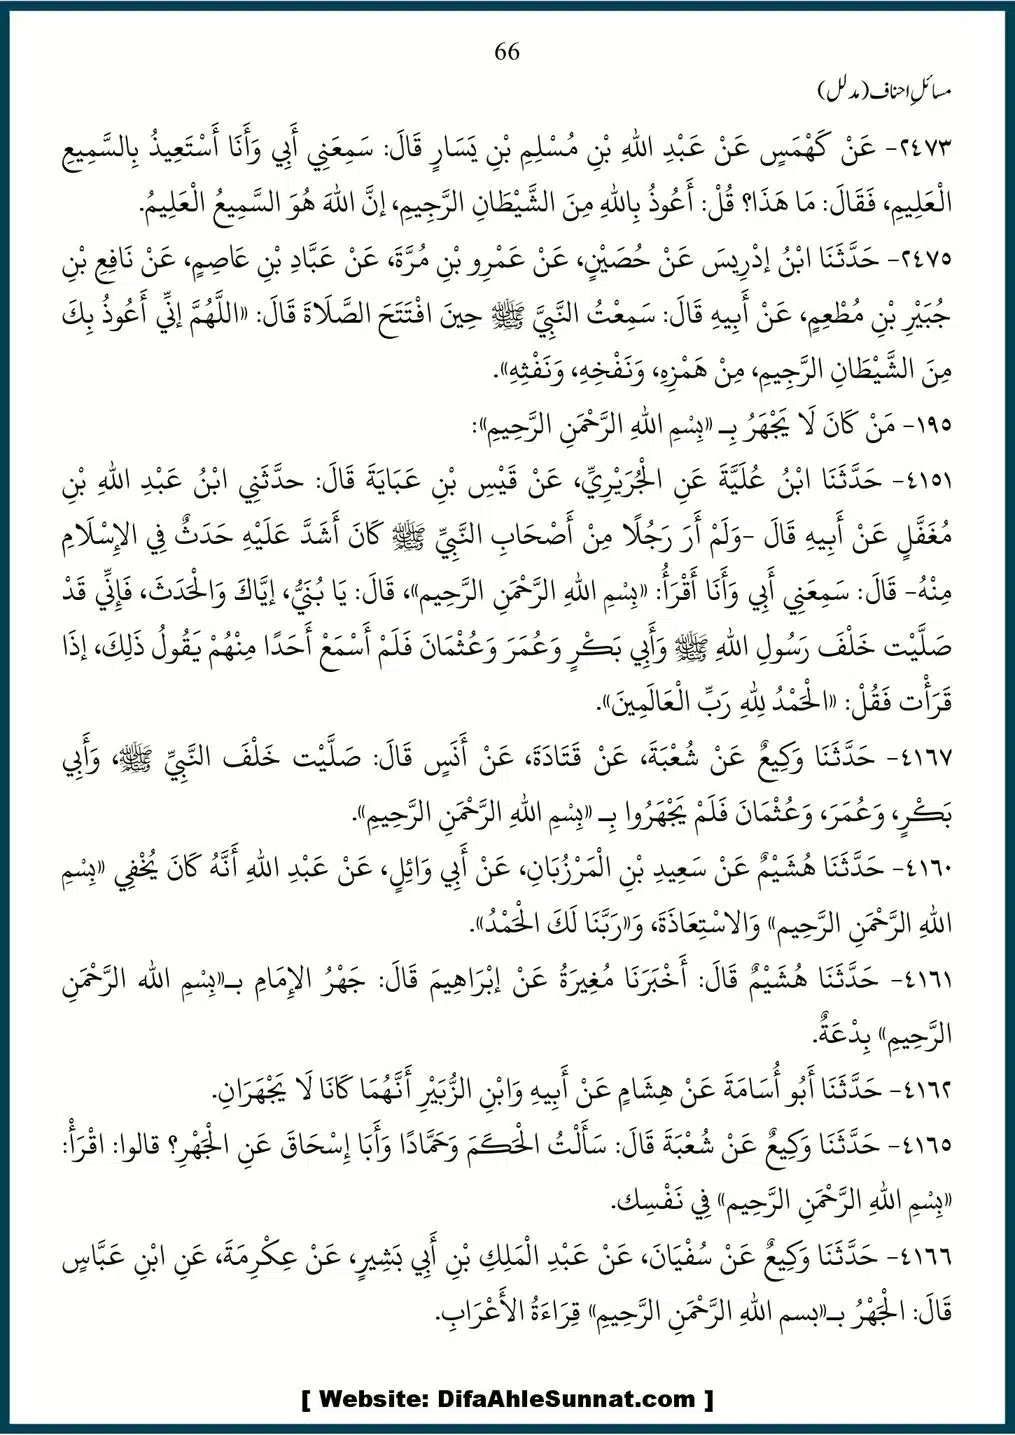 66
مسائلِ احناف (مدلل)
٢٤٧٣- عَنْ كَهْمَسٍ عَنْ عَبْدِ اللهِ بْنِ مُسْلِمِ بْنِ يَسَارٍ قَالَ: سَمِعَنِي أَبِي وَأَنَا أَسْتَعِيذُ بِالسَّمِيعِ
الْعَلِيمِ، فَقَالَ: مَا هَذَا؟ قُلْ: أَعُوذُ بِاللهِ مِنَ الشَّيْطَانِ الرَّجِيمِ، إنَّ اللهَ هُوَ السَّمِيعُ الْعَلِيمُ.
٢٤٧٥- حَدَّثَنَا ابْنُ إدْرِيسَ عَنْ حُصَيْنٍ، عَنْ عَمْرِو بْنِ مُرَّةَ، عَنْ عَبَّادِ بْنِ عَاصِمٍ، عَنْ نَافِعِ بْنِ
جُبَيْرِ بْنِ مُطْعِمٍ، عَنْ أَبِيهِ قَالَ: سَمِعْتُ النَّبِيَّ ﷺ حِينَ افْتَتَحَ الصَّلَاةَ قَالَ: «اللَّهُمَّ إنِّي أَعُوذُ بِكَ
مِنَ الشَّيْطَانِ الرَّجِيمِ، مِنْ هَمْزِهِ، وَنَفْخِهِ، وَنَفْثِهِ».
١٩٥- مَنْ كَانَ لَا يَجْهَرُ بِـ «بِسْمِ اللهِ الرَّحْمَنِ الرَّحِيمِ»:
٤١٥١- حَدَّثَنَا ابْنُ عُلَيَّةَ عَنِ الْجُرَيْرِيِّ، عَنْ قَيْسِ بْنِ عَبَايَةَ قَالَ: حدَّثَنِي ابْنُ عَبْدِ اللهِ بْنِ
مُغَفَّلٍ عَنْ أَبِيهِ قَالَ -وَلَمْ أَرَ رَجُلًا مِنْ أَصْحَابِ النَّبِيِّ ﷺ كَانَ أَشَدَّ عَلَيْهِ حَدَثٌ فِي الإِسْلَامِ
مِنْهُ- قَالَ: سَمِعَنِي أَبِي وَأَنَا أَقْرَأُ: «بِسْمِ اللهِ الرَّحْمَنِ الرَّحِيم»، قَالَ: يَا بُنَيُّ، إيَّاكَ وَالْحَدَثَ، فَإِنِّي قَدْ
صَلَّيْت خَلْفَ رَسُولِ اللهِ ﷺ وَأَبِي بَكْرٍ وَعُمَرَ وَعُثْمَانَ فَلَمْ أَسْمَعْ أَحَدًا مِنْهُمْ يَقُولُ ذَلِكَ، إذَا
قَرَأْت فَقُلْ: «الْحَمْدُ لِلهِ رَبِّ الْعَالَمِينَ».
٤١٦٧- حَدَّثَنَا وَكِيعٌ عَنْ شُعْبَةَ، عَنْ قَتَادَةَ، عَنْ أَنَسٍ قَالَ: صَلَّيْت خَلْفَ النَّبِيِّ ﷺ، وَأَبِي
بَكْرٍ، وَعُمَرَ، وَعُثْمَانَ فَلَمْ يَجْهَرُوا بِـ «بِسْمِ اللهِ الرَّحْمَنِ الرَّحِيمِ».
٤١٦٠- حَدَّثَنَا هُشَيْمٌ عَنْ سَعِيدِ بْنِ الْمَرْزُبَانِ، عَنْ أَبِي وَائِلٍ، عَنْ عَبْدِ اللهِ أَنَّهُ كَانَ يُخْفِي «بِسْمِ
اللهِ الرَّحْمَنِ الرَّحِيم» وَالاسْتِعَاذَةَ، وَ«رَبَّنَا لَكَ الْحَمْدُ».
٤١٦١- حَدَّثَنَا هُشَيْمٌ قَالَ: أَخْبَرَنَا مُغِيرَةُ عَنْ إبْرَاهِيمَ قَالَ: جَهْرُ الإِمَامِ بـ«بِسْمِ الله الرَّحْمَنِ
الرَّحِيمِ» بِدْعَةٌ.
٤١٦٢- حَدَّثَنَا أَبُو أُسَامَةَ عَنْ هِشَامٍ عَنْ أَبِيهِ وَابْنِ الزُّبَيْرِ أَنَّهُمَا كَانَا لَا يَجْهَرَانِ.
٤١٦٥- حَدَّثَنَا وَكِيعٌ عَنْ شُعْبَةَ قَالَ: سَأَلْتُ الْحَكَمَ وَحَمَّادًا وَأَبَا إِسْحَاقَ عَنِ الْجَهْرِ؟ قالوا: اقْرَأْ:
«بِسْمِ اللهِ الرَّحْمَنِ الرَّحِيم» فِي نَفْسِك.
٤١٦٦- حَدَّثَنَا وَكِيعٌ عَنْ سُفْيَانَ، عَنْ عَبْدِ الْمَلِكِ بْنِ أَبِي بَشِيرٍ، عَنْ عِكْرِمَةَ، عَنِ ابْنِ عَبَّاسٍ
قَالَ: الْجَهْرُ بـ«بسم اللهِ الرَّحْمَنِ الرَّحِيمِ» قِرَاءَةُ الأَعْرَابِ.
[ Website: DifaAhleSunnat.com ]